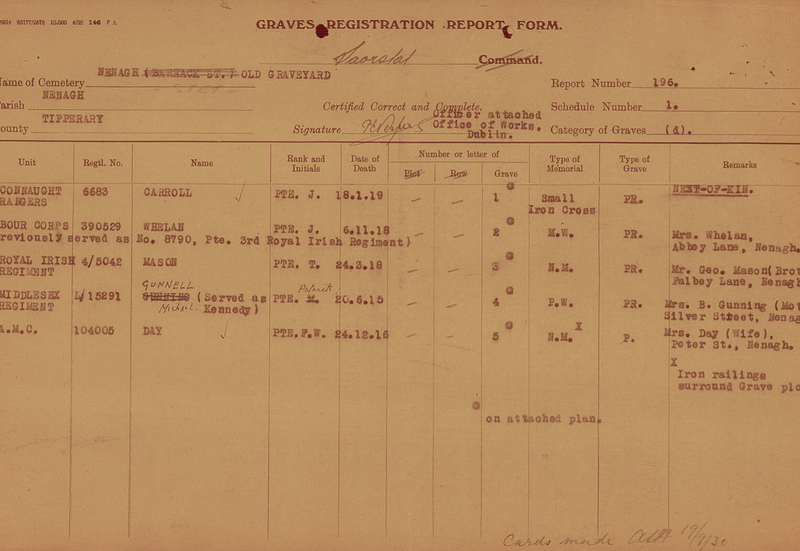 146
GRAVES REGISTRATION REPORT FORM.
Saorstat Command.
NENAGH (BARRACK ST.) OLD GRAVEYARD
ame of Cemetery
Report Number 196.
NENAGH
arish
Certified Correct and Complete.
Schedule Number 1.
TIPPERARY
ounty
Signature
Officer attached
Office of Works.
Dublin.
Category of Graves (d).
Unit Regtl. No. Name Rank and Initials Date of Death Number or letter of Plot Row Grave Type of Memorial Type of Grave Remarks
NEXT-OF-KIN.
CONNAUGHT 6683 CARROLL PTE. J. 18.1.19 — — 1 Small PR.
RANGERS Iron Cross
BOUR CORPS 390529 WHELAN PTE. J. 6.11.18 — — 2 M.W. PR. Mrs. Whelan,
reviously served as No. 8790, Pte. 3rd Royal Irish Regiment) Abbey Lane, Nenagh.
ROYAL IRISH 4/5042 MASON PTE. T. 24.3.18 — — 3 N.M. PR. Mr. Geo. Mason(Brot
REGIMENT Falbey Lane, Nenagh
GUNNELL Patrick
MIDDLESEX L/15291 GUNNING (Served as PTE. M. 20.6.15 — — 4 P.W. PR. Mrs. B. Gunning (Mot
REGIMENT Michael Kennedy) Silver Street, Nenag
A.M.C. 104005 DAY PTE.F.W. 24.12.16 — — 5 N.M. X P. Mrs. Day (Wife),
Peter St., Nenagh.
X
Iron railings
surround Grave plo
on attached plan.
Cards made